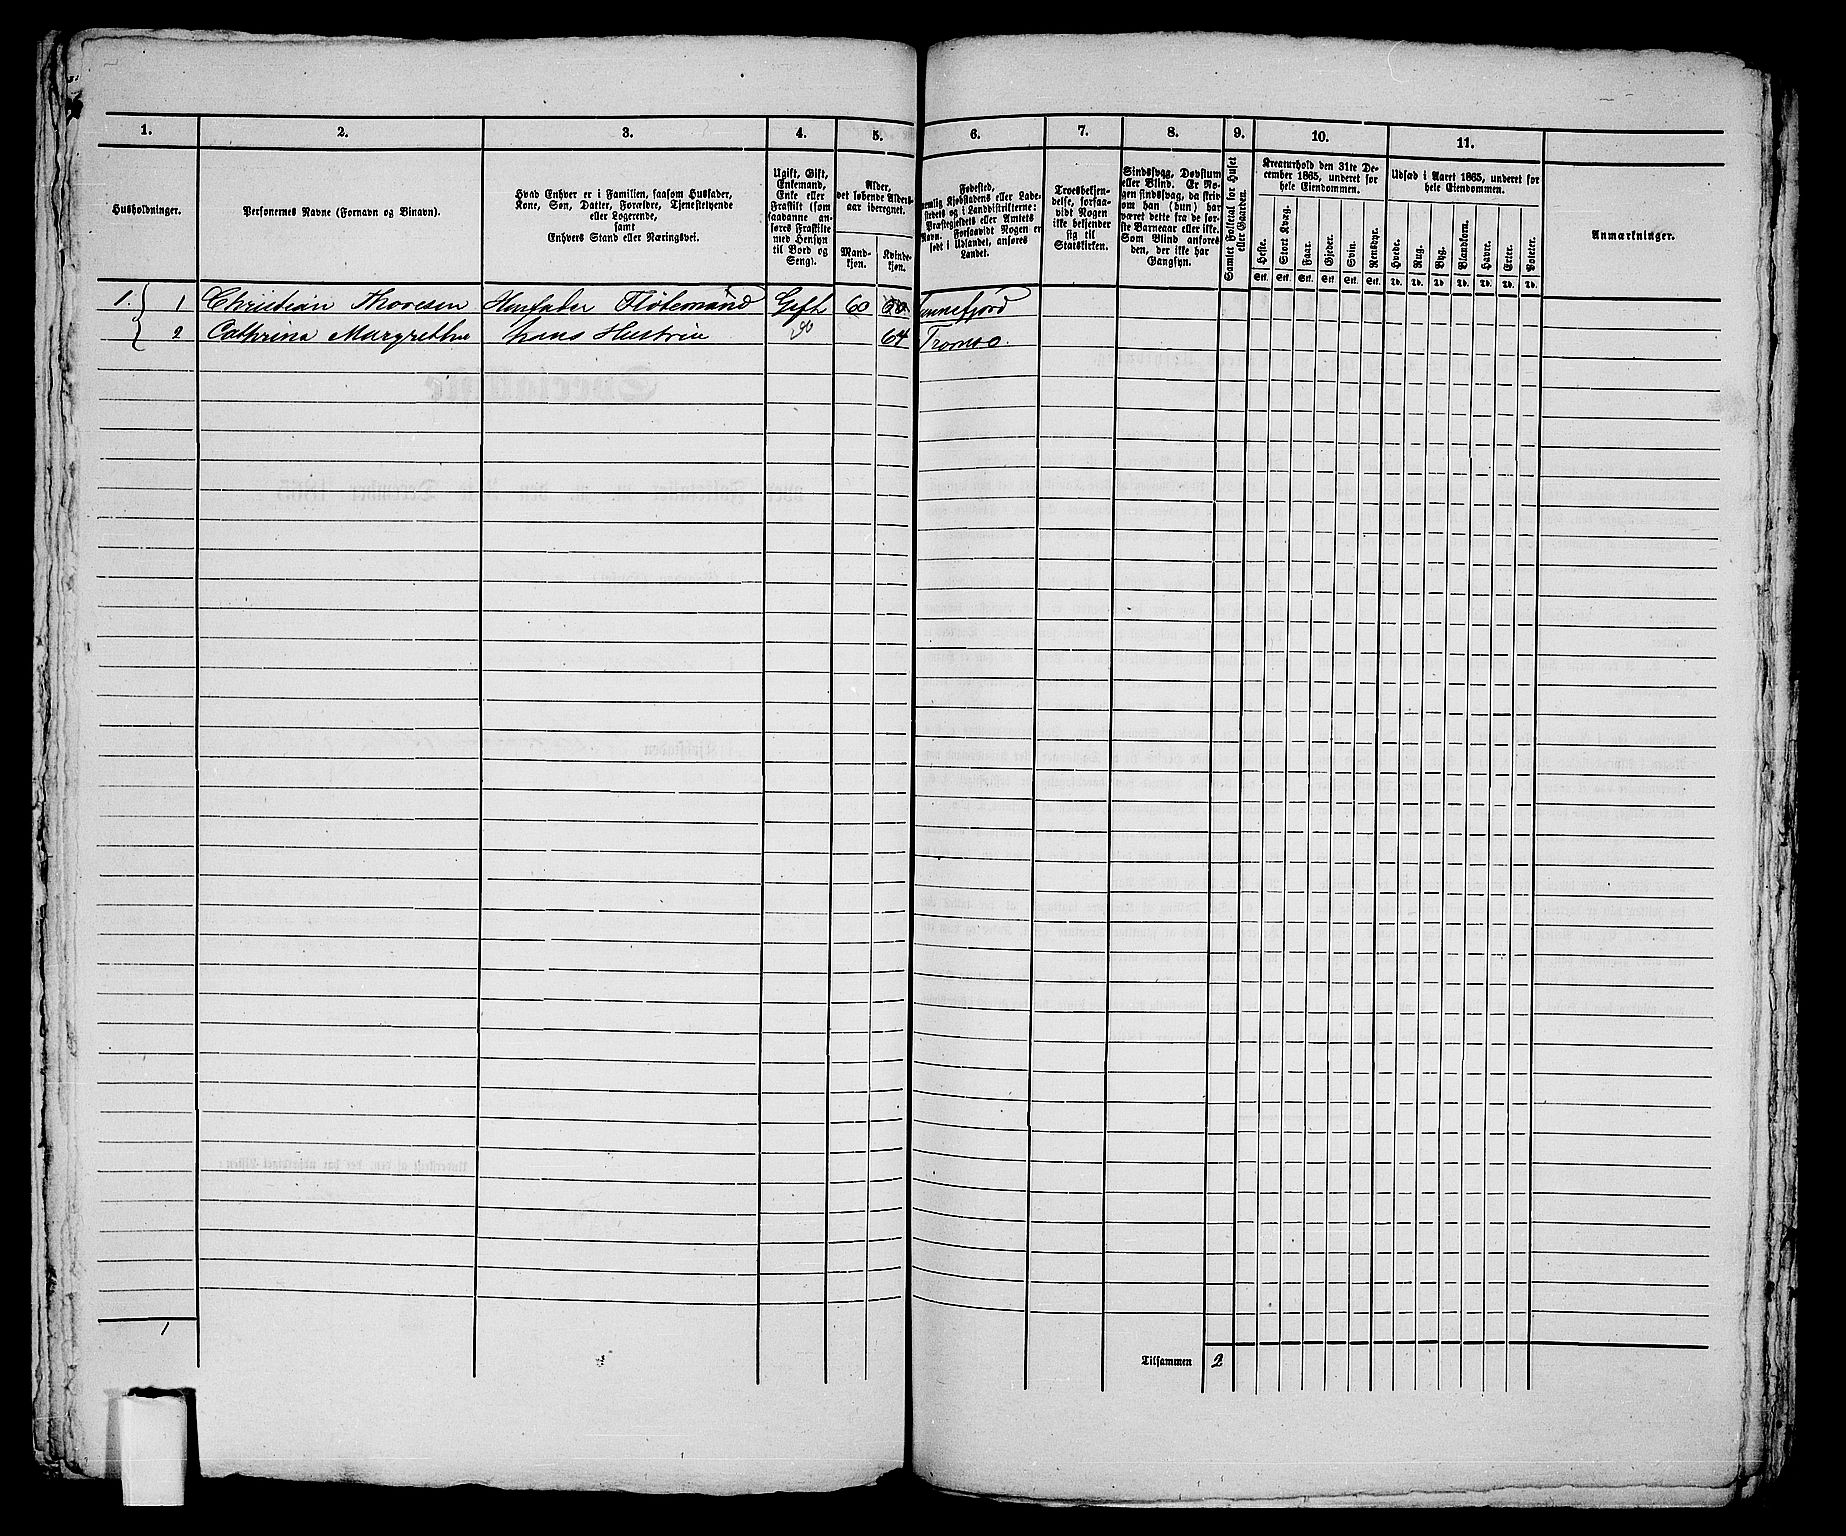 1. 2. 3. 4. 5. 6. 7. 8. 9. 10. 11.
Husholdninger.
Personernes Navne (Fornavn og Binavn).
Hvad Enhver er i Familien, saasom Husfader,
Kone, Søn, Datter, Forældre, Tjenestetyende
eller Logerende,
samt
Enhvers Stand eller Næringsvei.
Ugift, Gift,
Enkemand,
Enke eller
Fraskilt (som
saadanne an-
føres Fraskilte
med Hensyn
til Bord og
Seng).
Alder,
det løbende Alders-
aar iberegnet.
Mand-
kjøn.
Kvinde-
kjøn.
Fødested,
nemlig Kjøbstadens eller Lade-
stedets og i Landdistrikterne:
Præstegjeldets eller Amtets
Navn. Forsaavidt Nogen er
født i Udlandet, anføres
Landet.
Troesbekjen-
delse, forsaa-
vidt Nogen
ikke bekjender
sig til
Statskirken.
Sindssvag, Døvstum
eller Blind. Er No-
gen sindssvag, da skriv
om han (hun) har
været dette fra de før-
ste Barneaar eller ikke.
Som Blind anføres
den, der ikke har
Gangsyn.
Samlet Folketal for Huset
eller Gaarden.
Kreaturhold den 31te De-
cember 1865, underet for
hele Eiendommen.
Heste. Stort Kvæg. Faar. Gjeder. Svin. Rensdyr.
Stk. Stk. Stk. Stk. Stk. Stk.
Udsæd i Aaret 1865, underet for
hele Eiendommen.
Hvede. Rug. Byg. Blandkorn. Havre. Erter. Poteter.
Td. Td. Td. Td. Td. Td. Td.
Anmærkninger.
1. 1 Christian Thoresen Husfader Fløtemand Gift 60
2 Cathrina Margrethe hans Hustrue 64 Tromsø.
1
Tilsammen 2